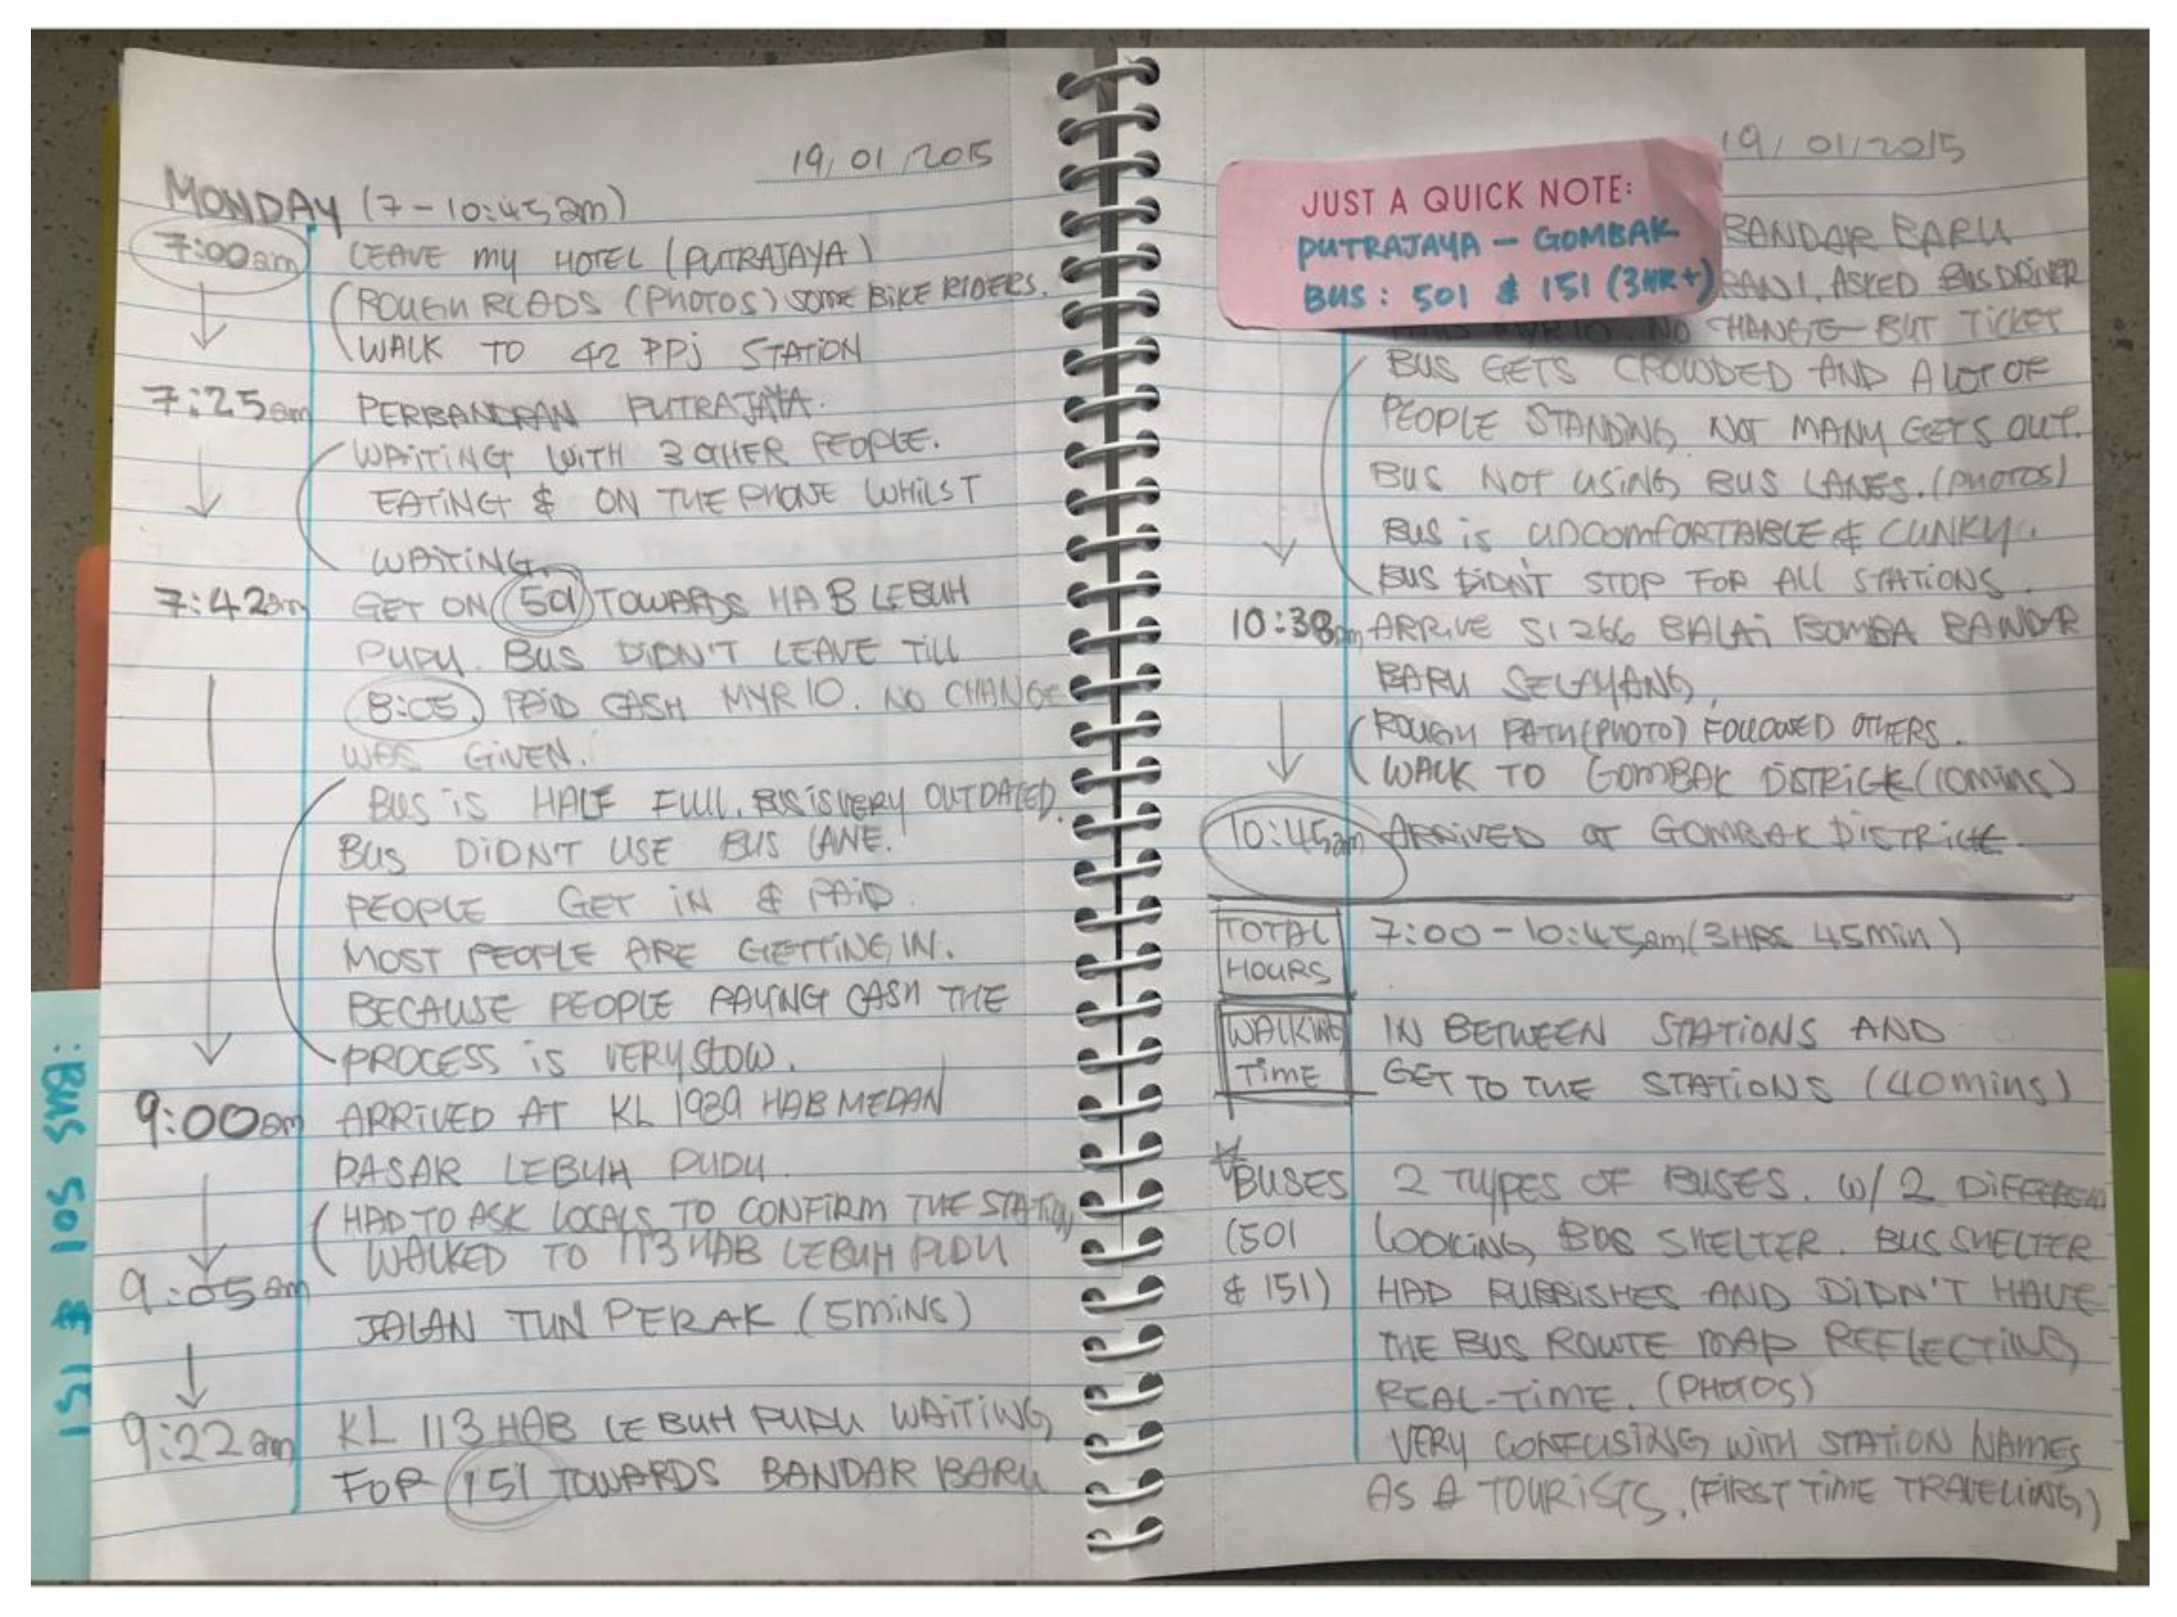 19/01/2015
MONDAY (7-10:45am)
7:00am LEAVE MY HOTEL (PUTRAJAYA)
ROUGH ROADS (PHOTOS) SOME BIKE RIDERS.
WALK TO 42 PPJ STATION
7:25am PERBANDRAN PUTRAJAYA.
WAITING WITH 3 OTHER PEOPLE.
EATING & ON THE PHONE WHILST
WAITING.
7:42am GET ON 501 TOWARDS HAB LEBUH
PUDU. BUS DIDN'T LEAVE TILL
8:05. PAID CASH MYR 10. NO CHANGE
WAS GIVEN.
BUS IS HALF FULL. BUS IS VERY OUTDATED.
BUS DIDN'T USE BUS LANE.
PEOPLE GET IN & PAID.
MOST PEOPLE ARE GETTING IN.
BECAUSE PEOPLE PAYING CASH THE
PROCESS IS VERY SLOW.
9:00am ARRIVED AT KL 1939 HAB MEDAN
PASAR LEBUH PUDU.
HAD TO ASK LOCALS TO CONFIRM THE STATION
WALKED TO 113 HAB LEBUH PUDU
9:05am
JALAN TUN PERAK (5MINS)
9:22am KL 113 HAB LEBUH PUDU WAITING
FOR 151 TOWARDS BANDAR BARU
BUS: 501 & 151
19/01/2015
JUST A QUICK NOTE:
PUTRAJAYA - GOMBAK
BUS: 501 & 151 (3HR+)
BANDAR BARU
ASKED BUS DRIVER
MYR 10. NO CHANGE BUT TICKET
BUS GETS CROWDED AND A LOT OF
PEOPLE STANDING, NOT MANY GETS OUT.
BUS NOT USING BUS LANES. (PHOTOS)
BUS IS UNCOMFORTABLE & CLUNKY.
BUS DIDN'T STOP FOR ALL STATIONS.
10:38am ARRIVE S1266 BALAI BOMBA BANDAR
BARU SELAYANG,
ROUGH PATH (PHOTO) FOLLOWED OTHERS.
WALK TO GOMBAK DISTRICT (10mins)
10:45am ARRIVED AT GOMBAK DISTRICT.
TOTAL HOURS 7:00-10:45am (3HRS 45MIN)
WALKING TIME IN BETWEEN STATIONS AND
GET TO THE STATIONS (40mins)
BUSES 2 TYPES OF BUSES. W/ 2 DIFFERENT
(501 LOOKING BUS SHELTER. BUS SHELTER
& 151) HAD RUBBISHES AND DIDN'T HAVE
THE BUS ROUTE MAP REFLECTING
REAL-TIME. (PHOTOS)
VERY CONFUSING WITH STATION NAMES
AS A TOURISTS. (FIRST TIME TRAVELING)